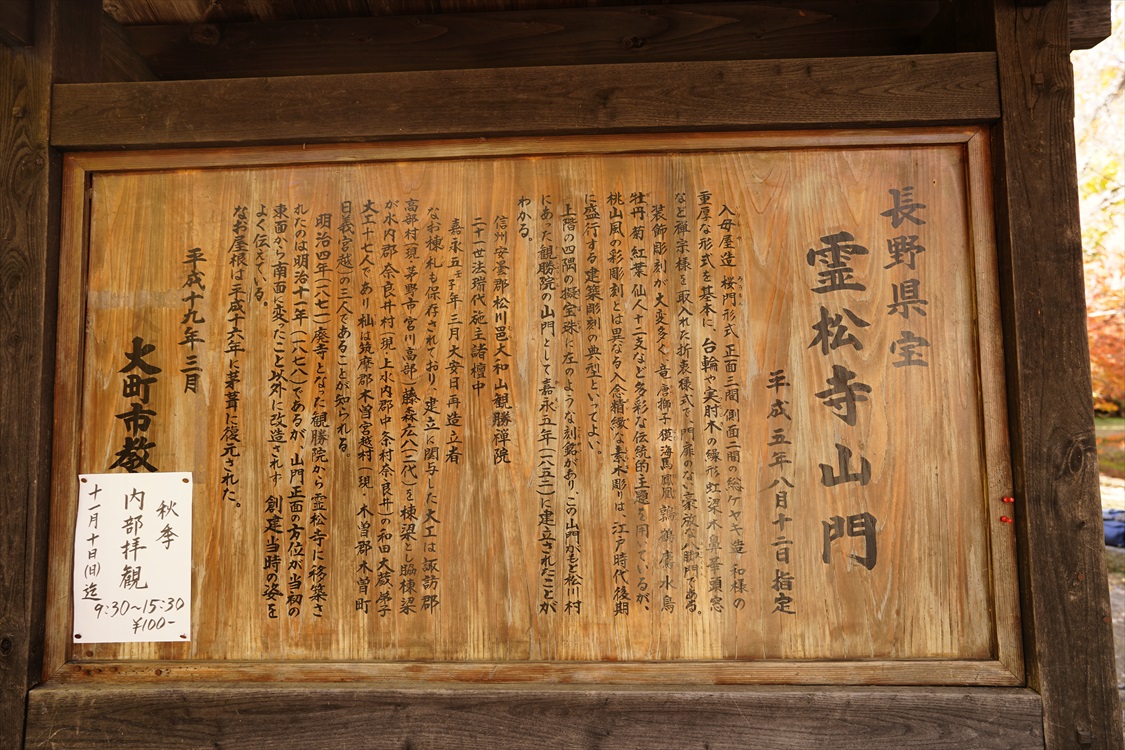 長野県宝
霊松寺山門
平成五年八月十二日指定
入母屋造 桜門形式 正面三間 側面二間の総ケヤキ造 和様の
重厚な形式を基本に、台輪や実肘木の繰形 虹梁木鼻 華頭窓
など禅宗様を取入れた折衷様式で、門扉のない豪放な八脚門である。
装飾彫刻が大変多く、竜 唐獅子 獏 海馬 鳳凰 鶴 水鳥
牡丹 菊 紅葉 仙人 十二支など多彩な伝統的主題を用いているが、
桃山風の彩彫刻とは異なる入念精緻な素木彫りは、江戸時代後期
に盛行する建築彫刻の典型といってよい。
上階の四隅の擬宝珠に左のような刻銘があり、この山門がもと松川村
にあった観勝院の山門として嘉永五年(一八五二)に建立されたことが
わかる。
信州安曇郡松川邑大和山観勝禅院
二十一世法瑞代施主諸檀中
嘉永五壬子年三月大安日再造立者
なお棟札も保存されており、建立に関与した大工は諏訪郡
高部村(現 茅野市宮川高部)藤森広八(二代)を棟梁とし脇棟梁
が水内郡奈良井村(現 上水内郡中条村奈良井)の和田大蔵 弟子
大工十七人であり 杣は筑摩郡木曽宮越村(現・木曽郡木曽町
日義宮越)の三人であることが知られる。
明治四年(一八七一)廃寺となった観勝院から霊松寺に移築さ
れたのは明治十一年(一八七八)であるが、山門正面の方位が当初の
東面から南面に変ったこと以外に改造されず 創建当時の姿を
よく伝えている。
なお屋根は平成十六年に茅葺に復元された。
平成十九年三月
大町市教
秋季
内部拝観
十一月十日(日)迄
9:30～15:30
¥100-